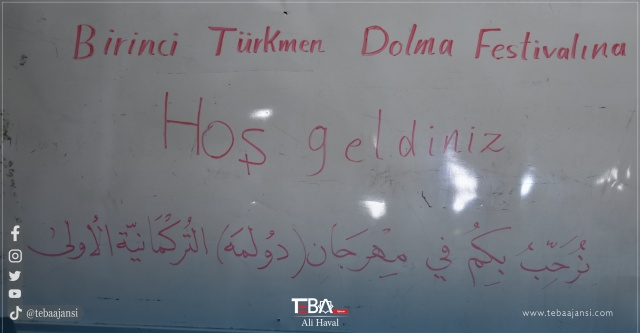 Birinci Türkmen Dolma Festivalına
Hoş geldiniz
نُرَحِّبُ بِكُمُ في مِهْرَجَان (دُولْمَه) التُّرْكْمَانِيَّة الْأُولىٰ
@tebaajansi
TEBA
Ali Haval
www.tebaajansi.com